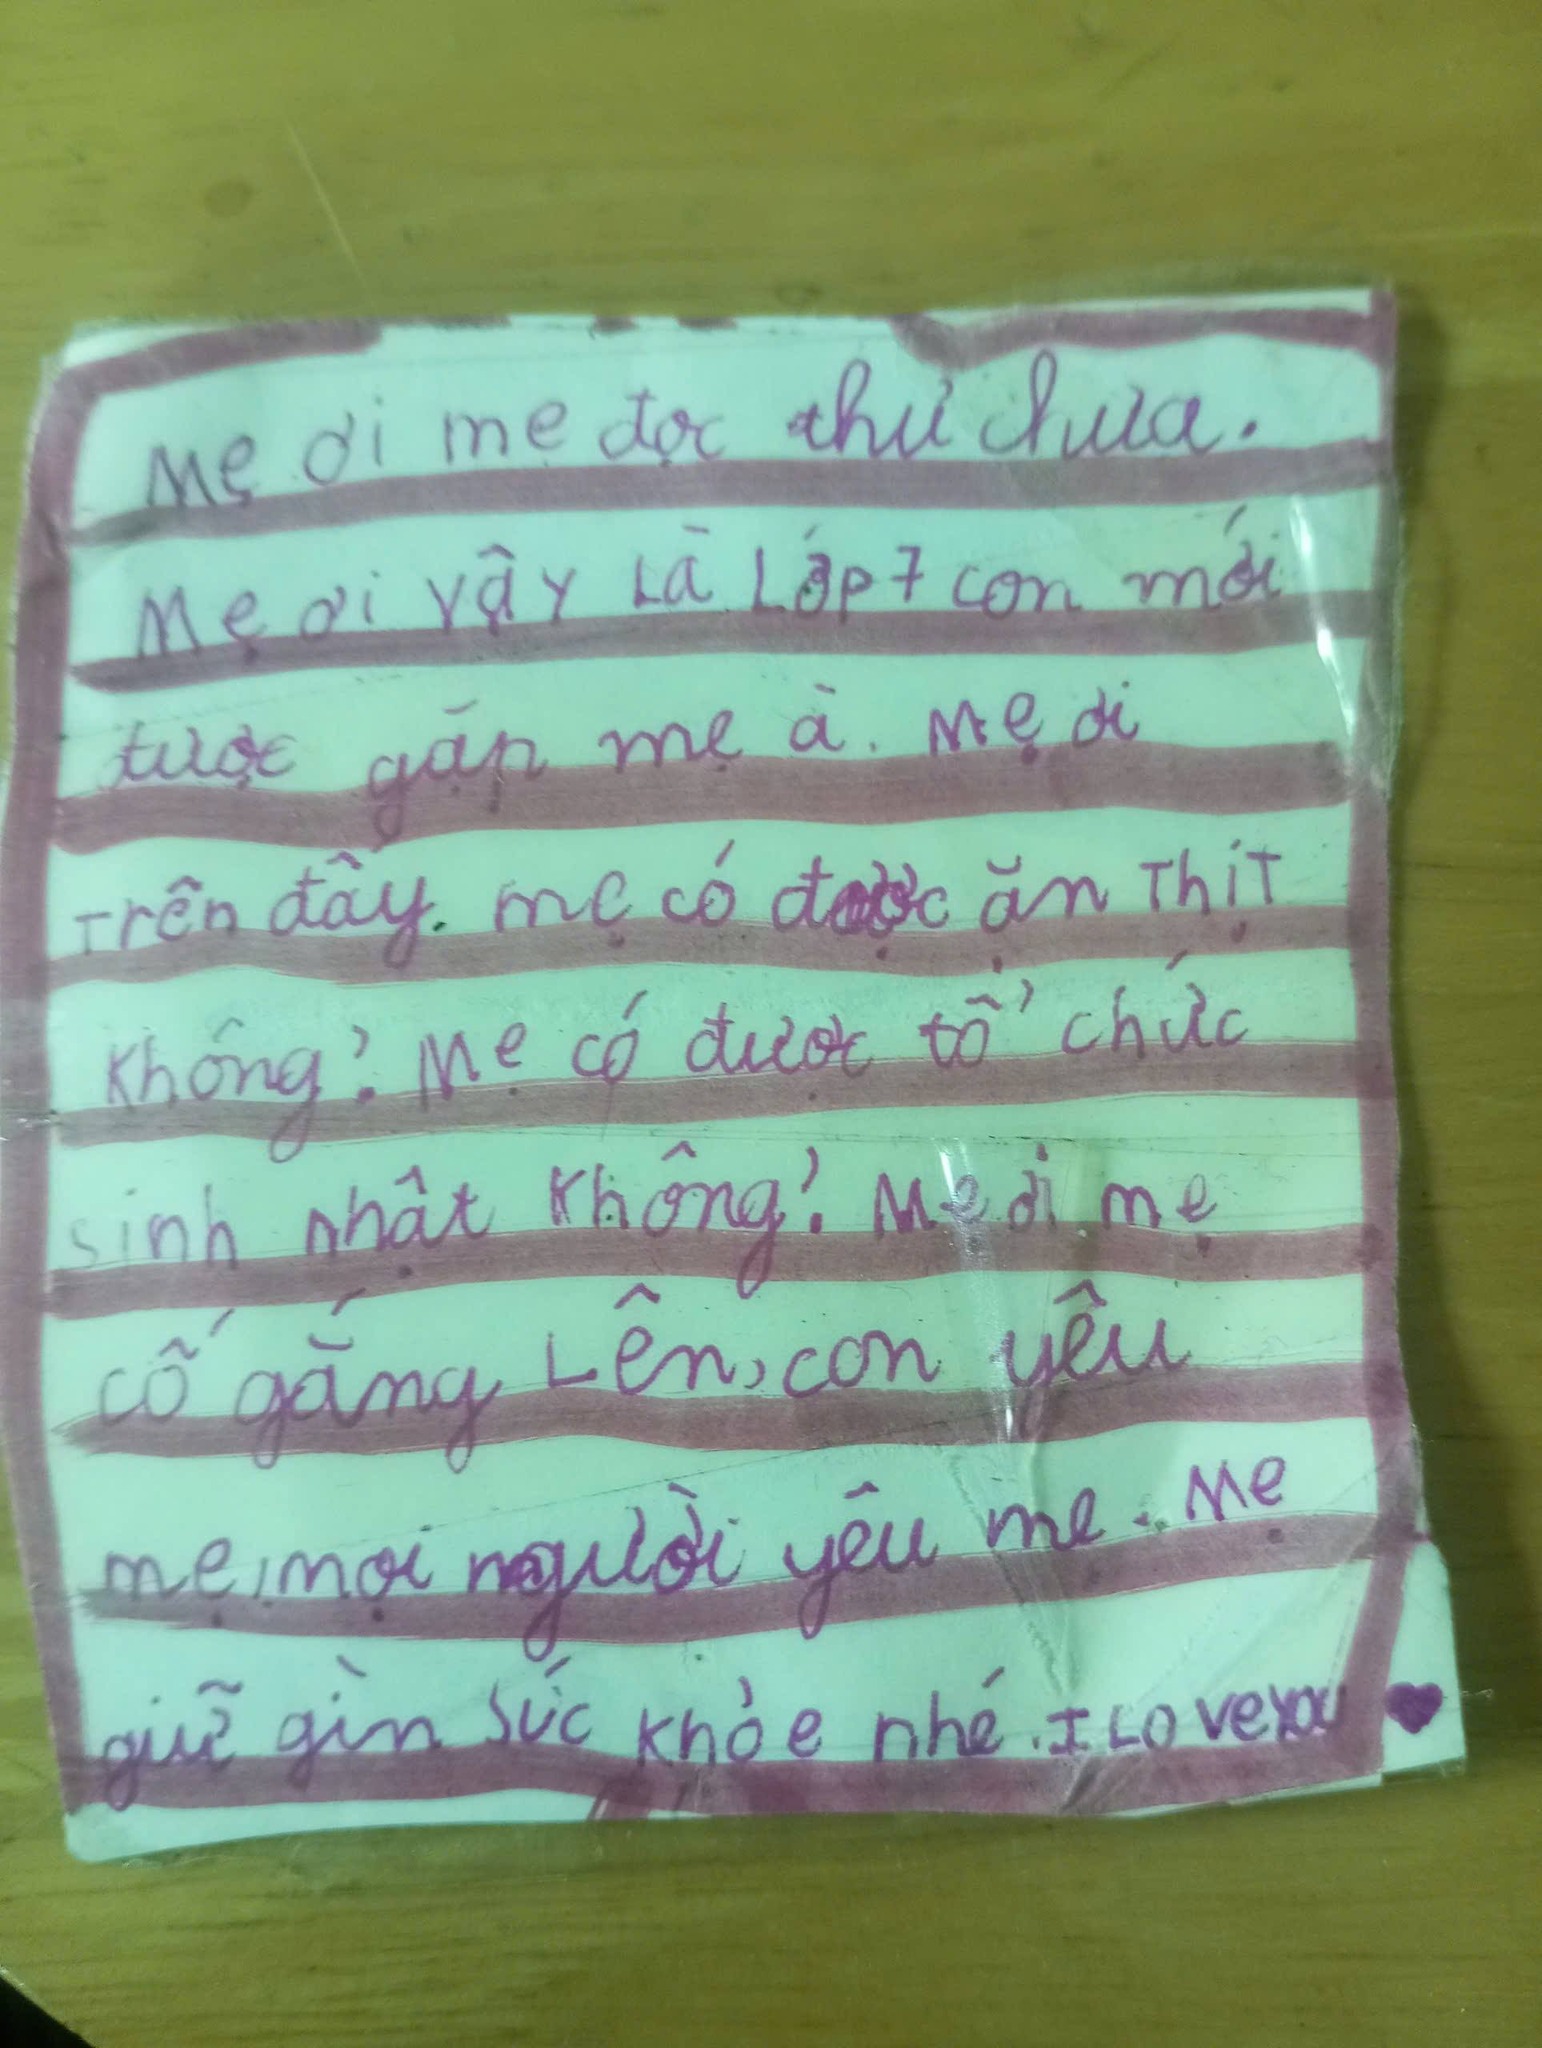 Mẹ ơi mẹ đọc thư chưa.
Mẹ ơi vậy Là Lớp 7 con mới
được gặp mẹ à. Mẹ ơi
Trên đấy. mẹ có được ăn Thịt
Không? Mẹ có được tổ chức
sinh nhật Không? Mẹ ơi mẹ
cố gắng Lên, con yêu
mẹ, mọi người yêu mẹ. Mẹ
giữ gìn sức khỏe nhé. I Love you